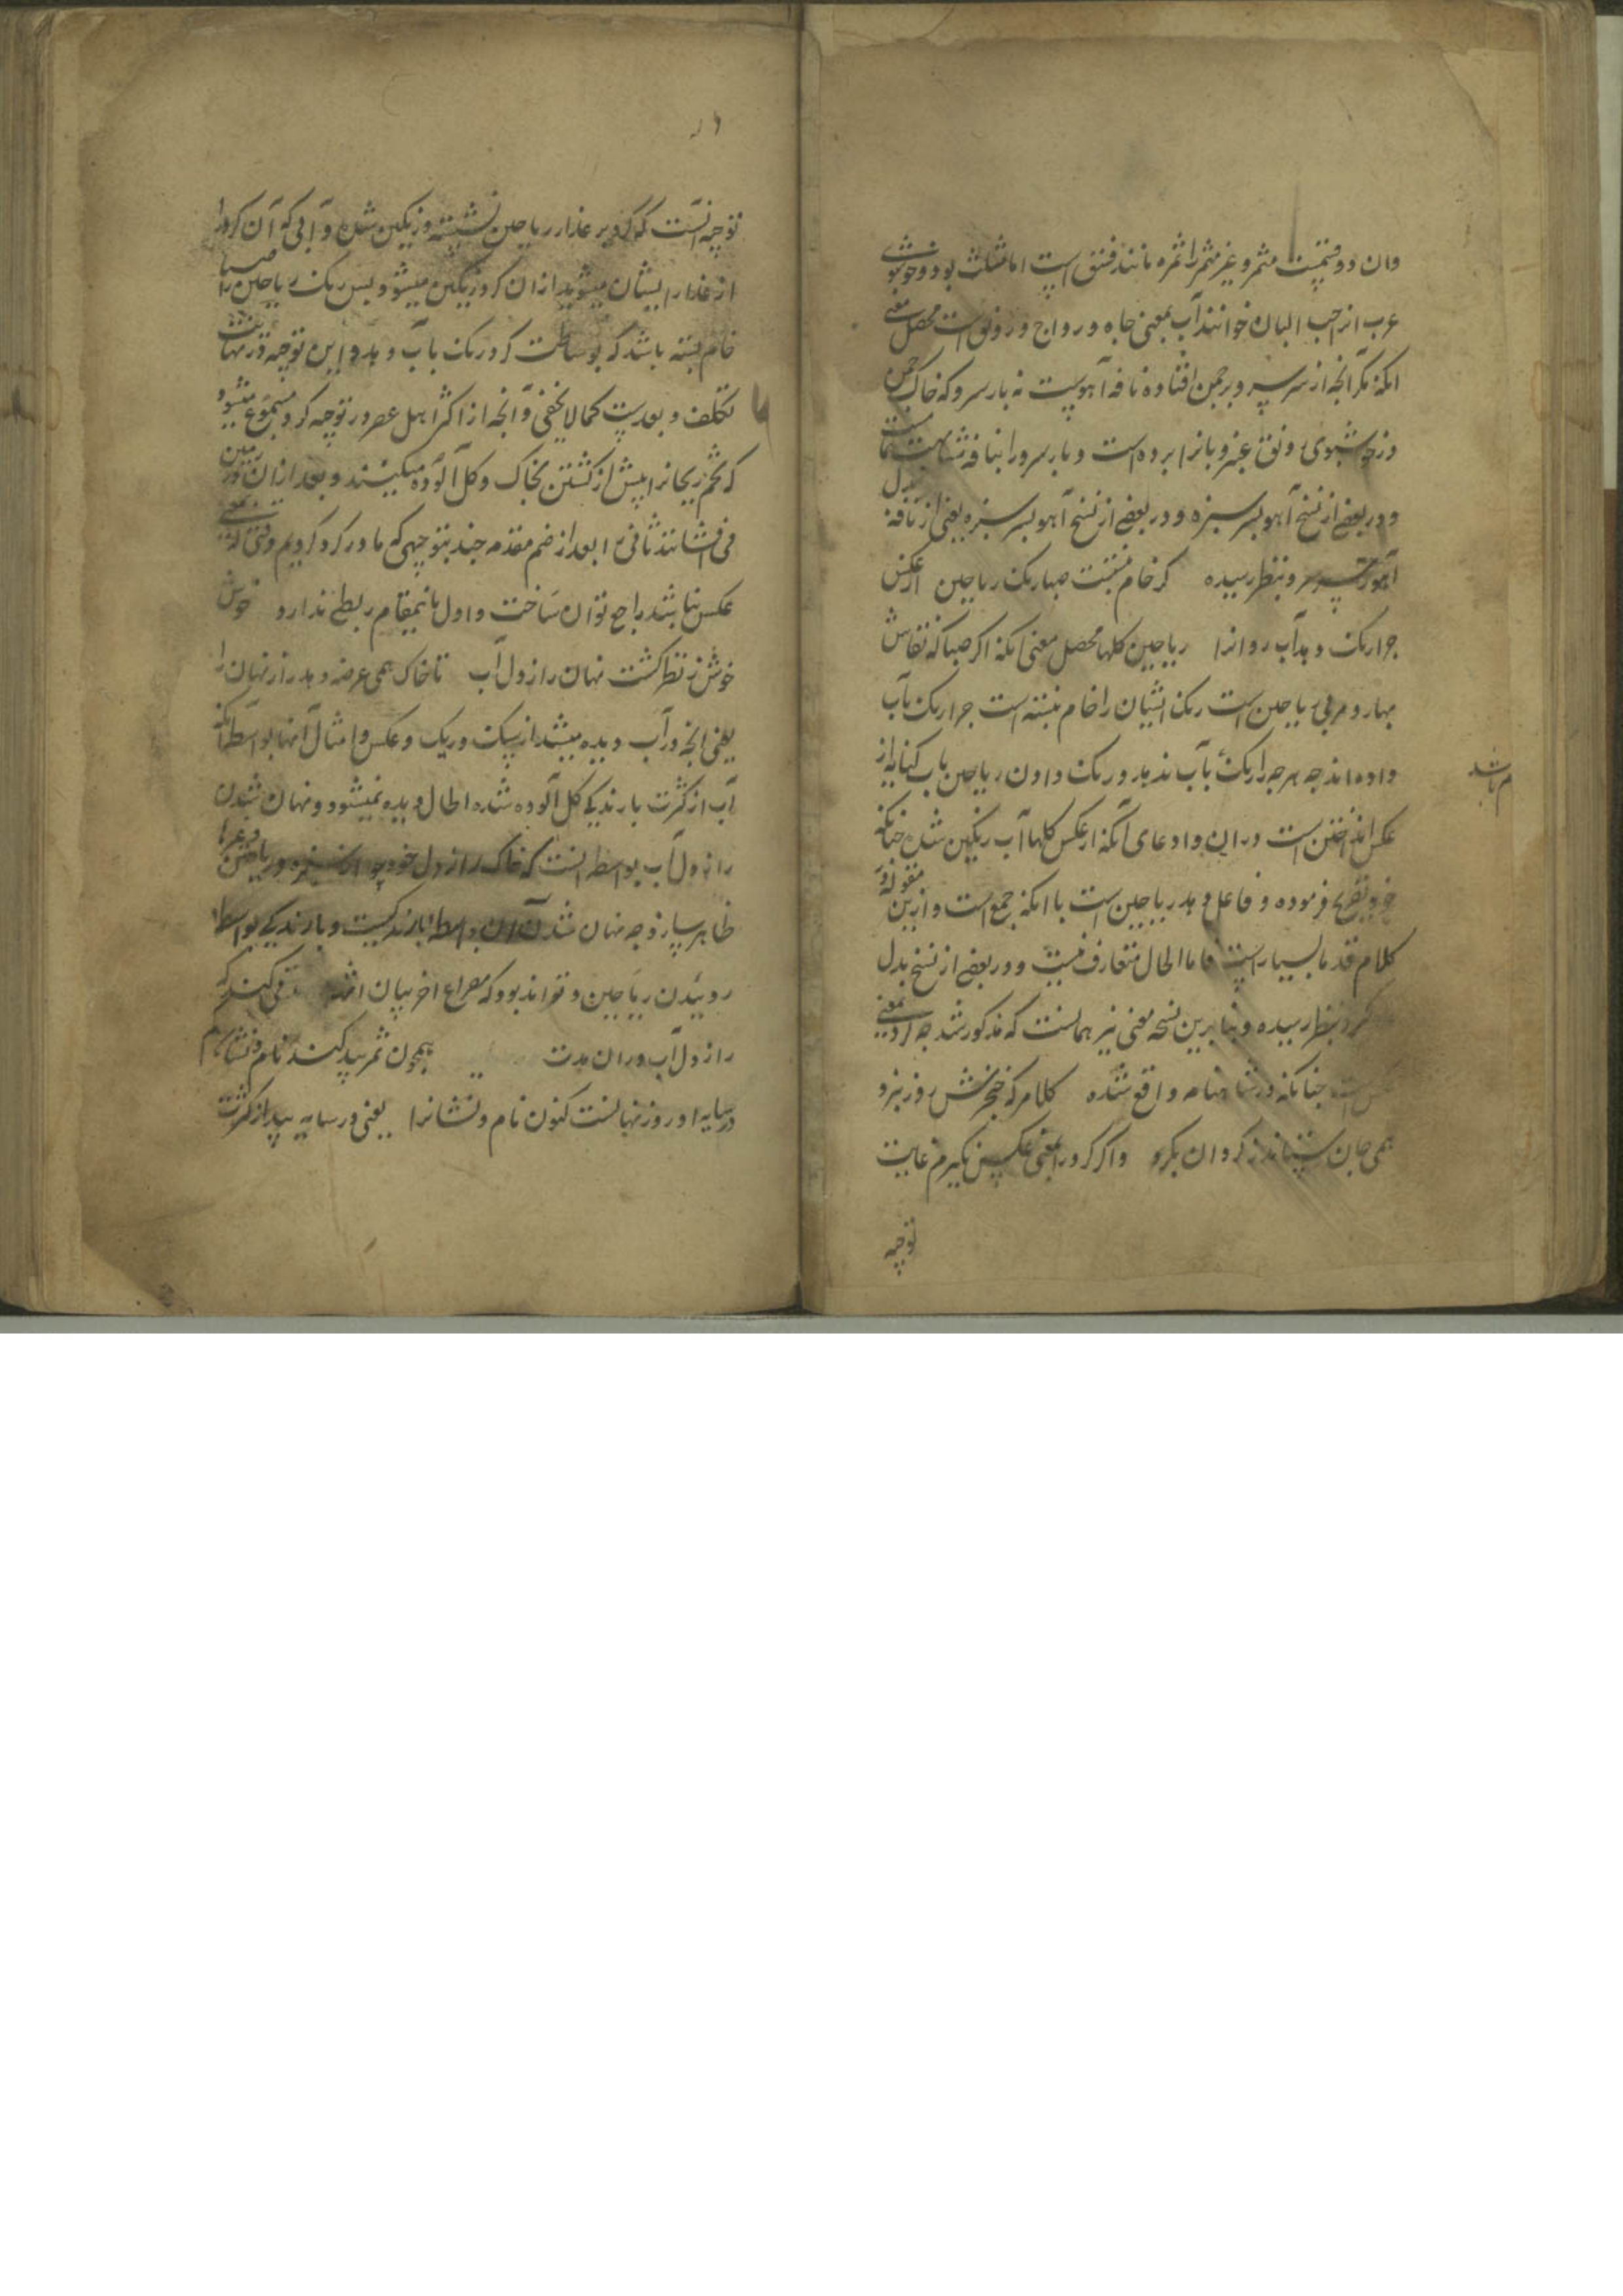 وان دو قسمست مثمر و غیر مثمر را ثمره مانند فستق است اما مثلث بود و خوشبوی
عرب انرا حب البان خوانند آب بمعنی جاه و رواج و رونق است محصل معنی
انکه مکر انچه از سر سرو بر چمن افتاده نافه آهوست نه بار سرو که خاک چمن
در خوشبوی رونق عنبر و بانرا برده است و بار سرو را بنافه مشابهت
و در بعضی از نسخ آهو بسر سبزه و در بعضی از نسخ آهو بسر سبزه یعنی از نافه
آهو بنظر رسیده کر خام نبست صبا رنک ریاحین از عکس
چرا رنک دهد آب روانرا ریاحین کلها محصل معنی انکه اکر صبا که نقاش
بهار و مربی ریاحین است رنک ایشان را خام نبسته است چرا رنک بآب
داده اند چه هر چه را رنک بآب ندهد و رنک دادن ریاحین بآب کنایه از
م باشد
عکس انداختن است در ان و ادعای آنکه از عکس کلها آب رنکین شده چنانکه
خود تصریح فرموده و فاعل دهد ریاحین است با انکه جمع است و ازین مقوله در
کلام قدما بسیار است فاما الحال متعارف نیست و در بعضی از نسخ بدل
کرد بنظر رسیده و بنا برین نسخه معنی نیز همانست که مذکور شد چه کرد بمعنی
عکس است چنانکه در شاهنامه واقع شده کلامر که خنجرش روز نبرد
همی جان ستاند ز کردان بکرد و اکر کرد را بمعنی عکس نکیرم غایت
توجیه
توجیه آنست که کرد بر عذار ریاحین نشسته و رنکین شده و آبی که آن کرد را
از عذار ایشان میشوید از ان کرد رنکین میشود پس رنک ریاحین را صبا
خام بسته باشد که بوساطت کرد رنک بآب دهد و این توجیه در نهایت
تکلف و بعدست کما لا یخفی و آنچه از اکثر اهل عصر در توجیه کرد مسموع میشود
که تخم ریحانرا پیش از کشتن بخاک و کل آلوده میکنند و بعد از ان در زمین
می افشانند ثانی را بعد از ضم مقدمه چند بتوجیهی که ما در کرد کردیم وقتی که بمعنی
عکس نباشد راجع توان ساخت و اول باینمقام ربطی ندارد خوش
خوش ز نظر کشت نهان راز دل آب تا خاک همی عرضه دهد راز نهان را
یعنی انچه در آب دیده میشد از سنک و ریک و عکس و امثال آنها بواسطه آنکه
آب از کثرت بارندکی کل آلوده شده الحال دیده نمیشود و نهان شدن
راز دل آب بواسطه آنست که خاک راز دل خود چون سبزه و ریاحین و غیرها
ظاهر سازد چه نهان شدن آن بواسطه بارندکیست و بارندکی بواسطه
روئیدن ریاحین و تواند بود که مصراع اخر بیان
راز دل آب در ان مدت همچون ثمر بید کند نام و نشان کم
در سایه او روز نهانست کنون نام و نشانرا یعنی در سایه بید از کثرت